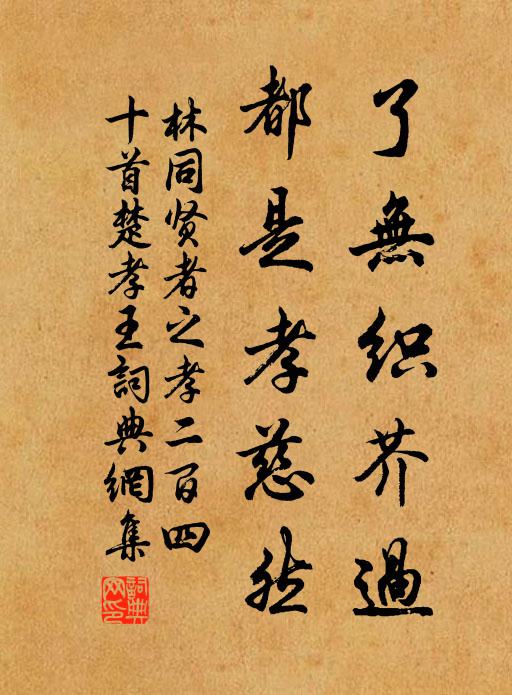 了無织芥過
都是孝慈然
林同贤者之孝二百四
十首楚孝王詞典網集
詞典網印